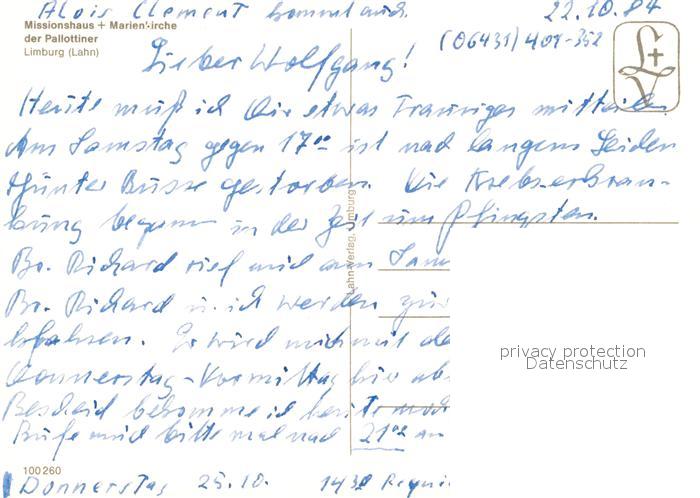 Alois Clement kommt auch.
22.10.84
Missionshaus + Marienkirche
der Pallottiner
Limburg (Lahn)
(06431) 401-352
Lieber Wolfgang!
Heute muß ich Dir etwas Trauriges mitteilen
Am Samstag gegen 17⁰⁰ ist nach langem Leiden
Günter Busse gestorben. Die Krebserkran-
kung begann in der Zeit um Pfingsten.
Br. Richard rief mich am Sam
Br. Richard u. ich werden zur
Er wird mich mit
Donnerstag-Vormittag hier ab
Bescheid bekomme ich heute noch
Rufe mich bitte mal nach 21⁰⁰ an
Donnerstag 25.10. 14³⁰ Requi
Lahn-Verlag, Limburg
100260
privacy protection
Datenschutz